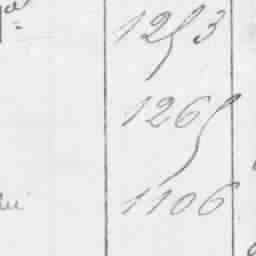 1253
1265
1106